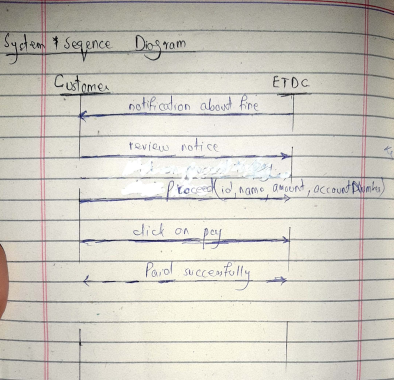 System * Seqence Diagram
Customer ETDC
notification about fine
review notice
Proceed(id, name, amount, account Number)
click on pay
Paid successfully